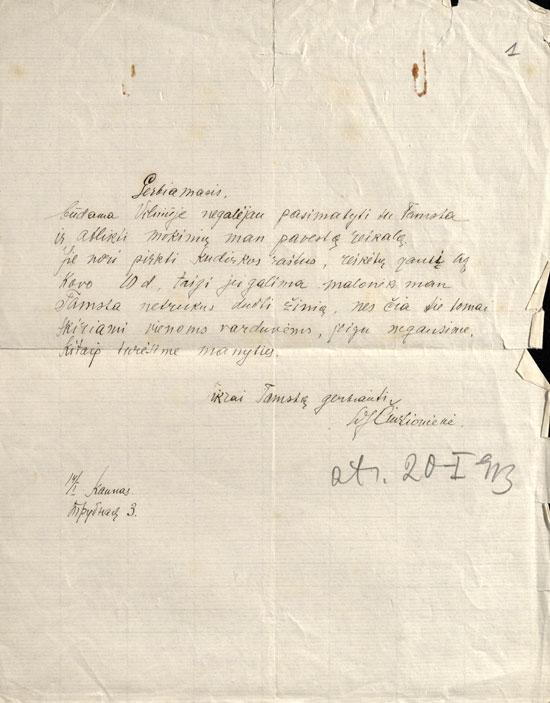 1
Gerbiamasis.
būdama Vilniuje negalėjau pasimatyti su Tamsta
ir atlikti mokinių man pavestą reikalą.
Jie nori pirkti Kudirkos raštus, reikėtų gauti
Kovo 10 d, jų galima malonės man
Tamsta netrukus duoti žinią, nes čia tie tomai
skiriami vienoms varduvėms, jeigu negausime,
kitaip turėsime manyties.
ikrai Tamstą gerbianti
14/I Kaunas
Трубная 3.
at. 20-I 913